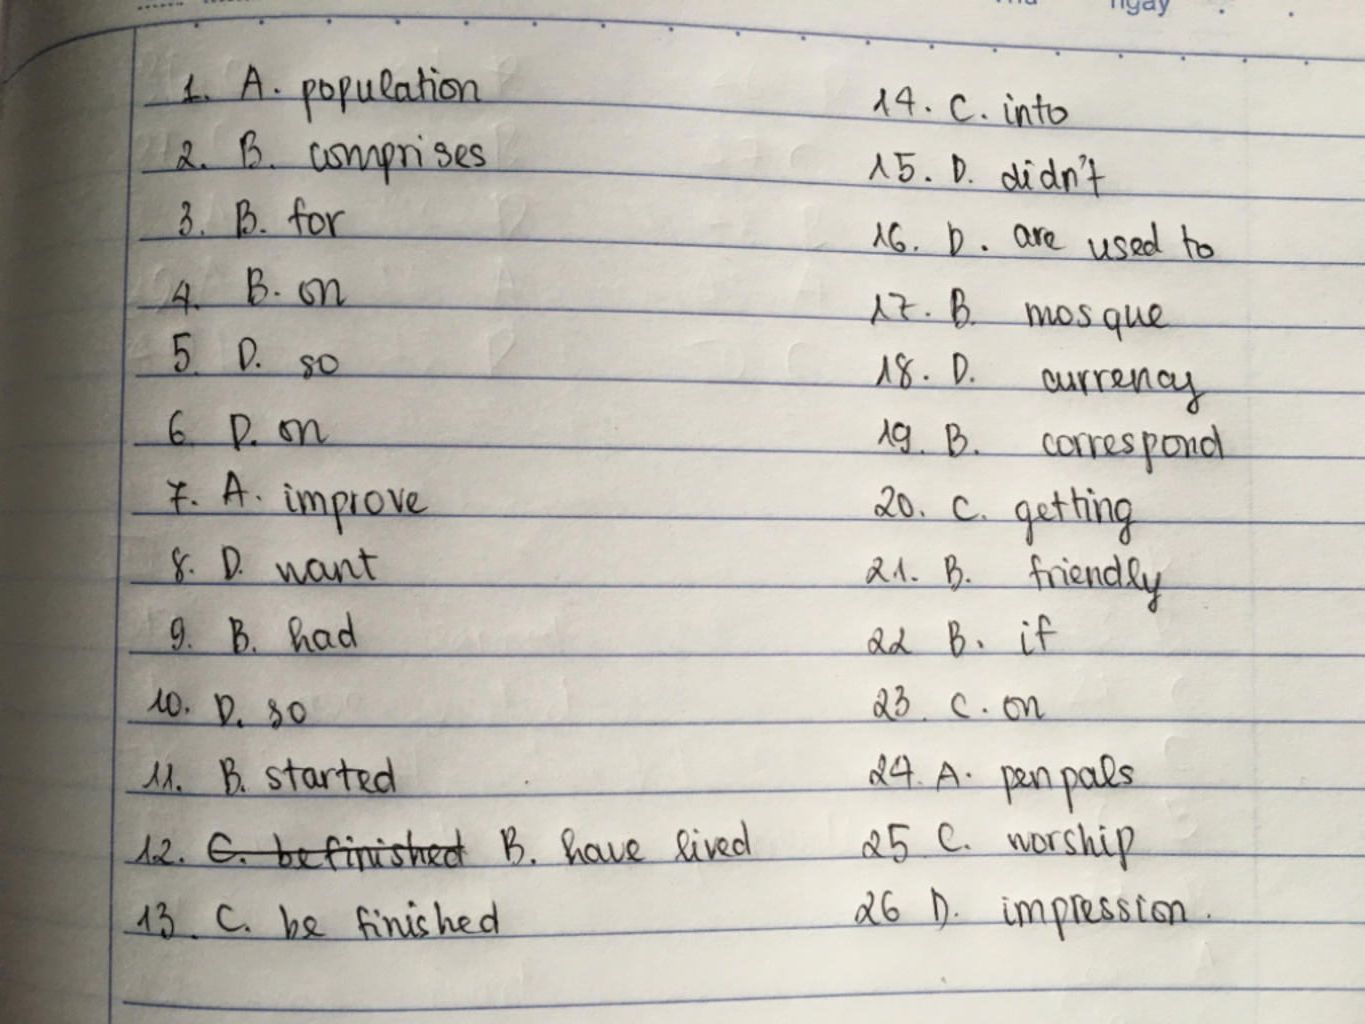 ngày
1. A. population
2. B. comprises
3. B. for
4. B. on
5. D. so
6. D. on
7. A. improve
8. D. want
9. B. had
10. D. so
11. B. started
12. C. be finished B. have lived
13. C. be finished
14. C. into
15. D. didn't
16. D. are used to
17. B. mosque
18. D. currency
19. B. correspond
20. C. getting
21. B. friendly
22 B. if
23. C. on
24. A. pen pals
25 C. worship
26 D. impression.